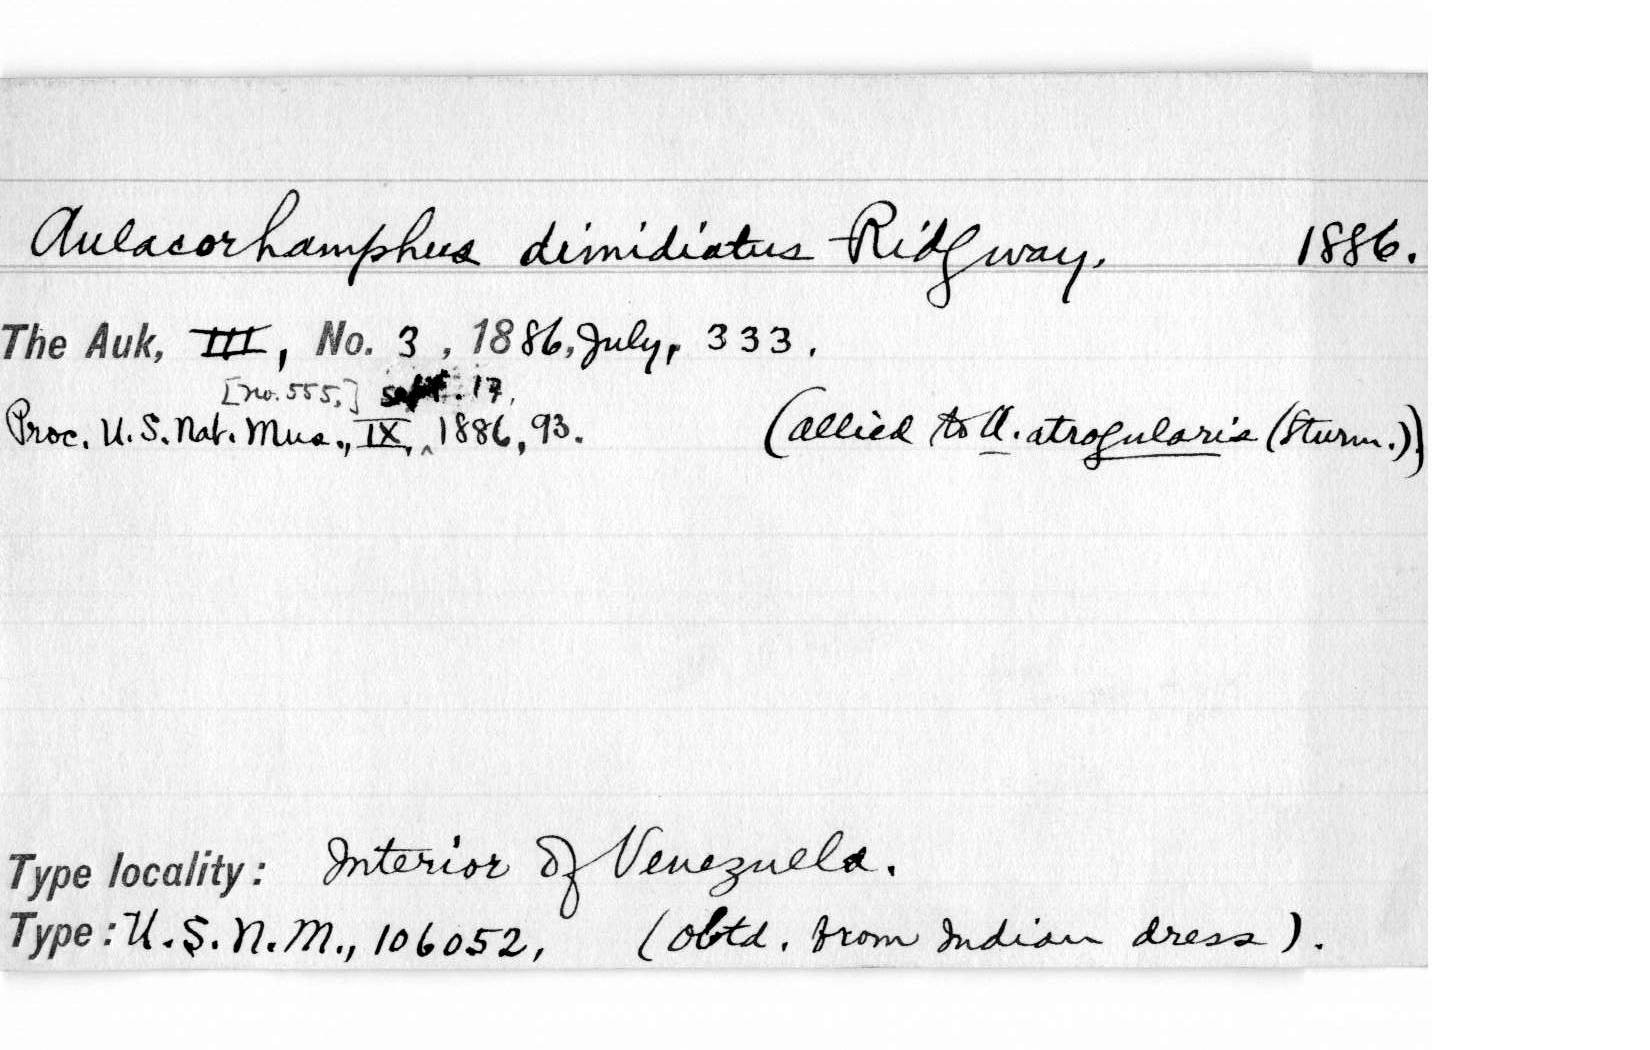 Aulacorhamphus dimidiatus Ridgway, 1886.
The Auk, III, No. 3, 1886, July, 333.
[no. 555,] Sept. 17,
Proc. U.S. Nat. Mus., IX, ‸ 1886, 93. (allied to A. atrogularis (Sturm.))
Type locality: Interior of Venezuela.
Type: U.S.N.M., 106052, (obtd. from Indian dress).